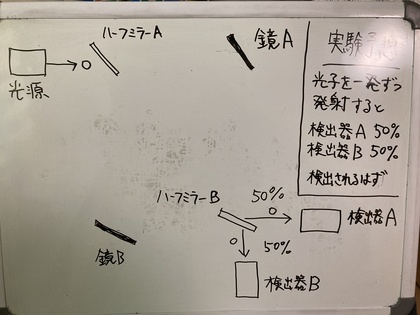 ハーフミラーA
鏡A
光源
実験予想
光子を一発ずつ
発射すると
検出器A 50%
検出器B 50%
検出されるはず
ハーフミラーB
50%
検出器A
50%
鏡B
検出器B